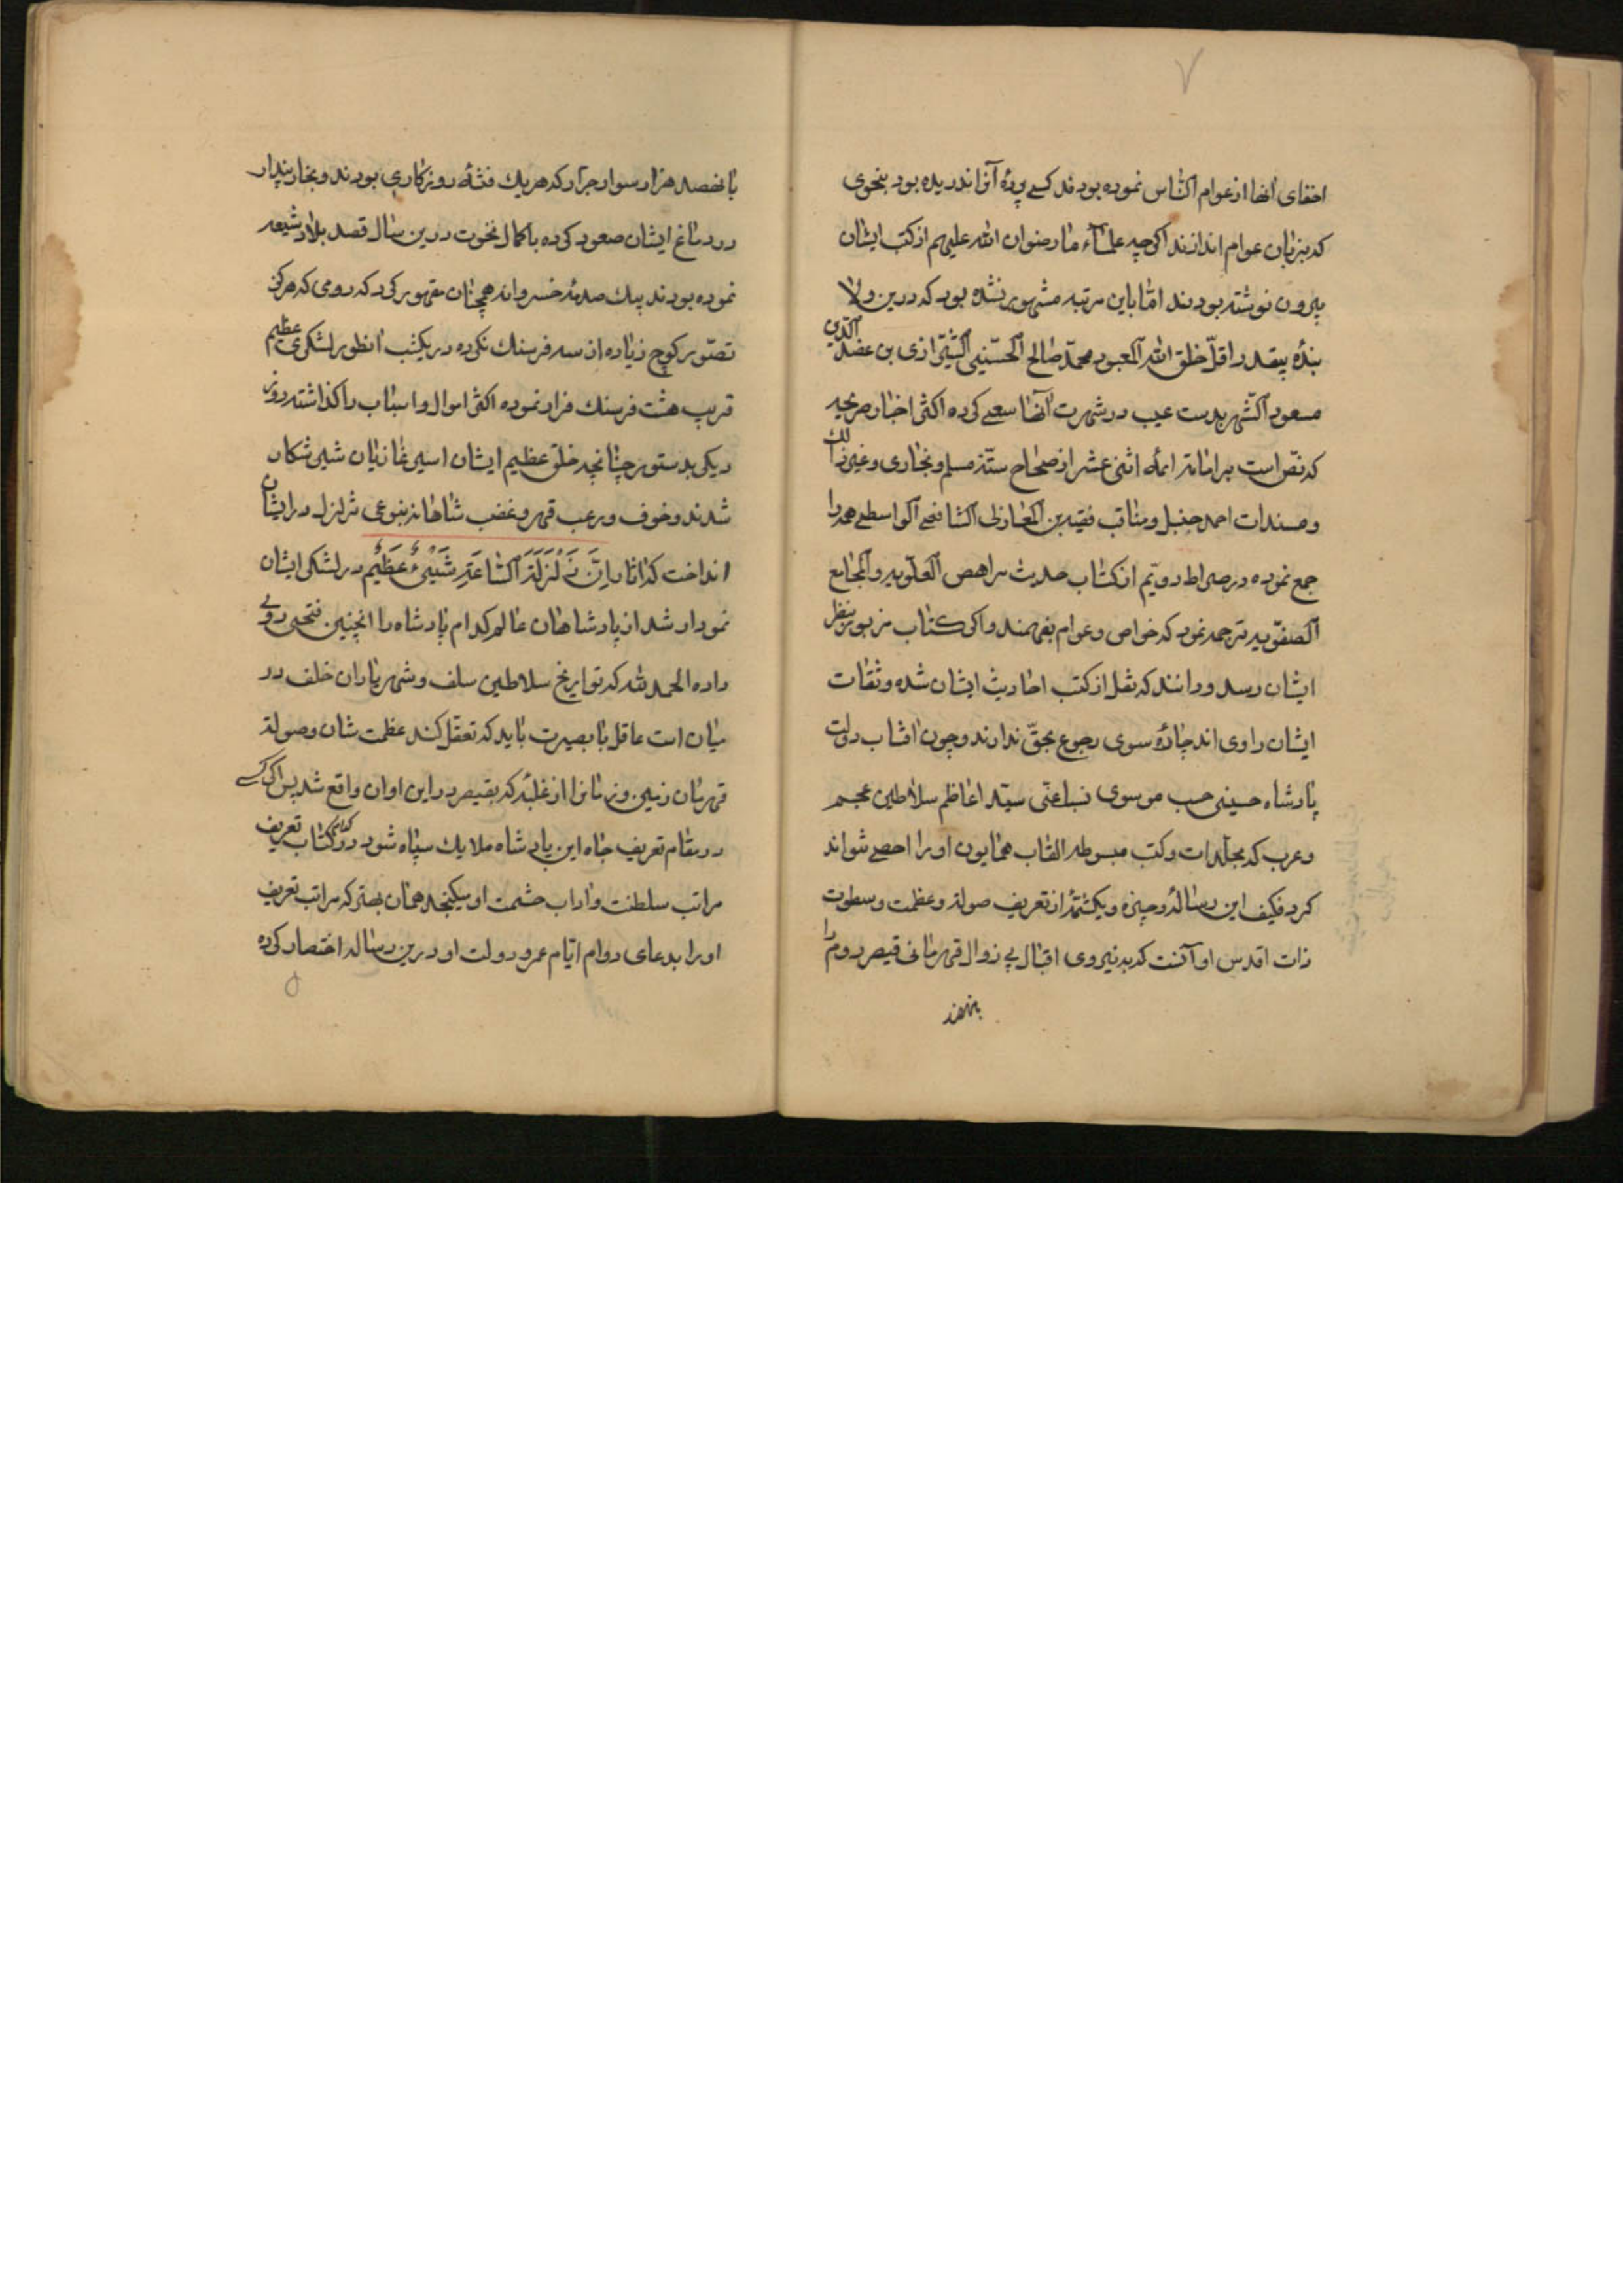 ۷
اخفای انها از عوام الناس نموده بودند کسی پردهٔ آنرا ندریده بود بنحوی
که بزبان عوام اندازند اگرچه علماء ما رضوان الله علیهم از کتب ایشان
بیرون نوشته بودند امّا باین مرتبه مشهور نشده بود که درین ولا
بندهٔ بیقدر اقلّ خلق الله المعبود محمّد صالح الحسینی بن عضد الدین
مسعود الشهیر بدست غیب در شهرت آنها سعی کرده اکثر اخبار صریحه
که نصّ است بر امامة ائمهٔ اثنی عشر از صحاح ستّه مسلم و بخاری و غیر ذالک
و مسندات احمد حنبل و مناقب فقیه بن المغازلی الشافعی الواسطی همه را
جمع نموده در صراط دویّم از کتاب حدیث العلویه و
الصفویه ترجمه نمود که خواص و عوام بفهمند و اگر کتاب مزبور بنظر
ایشان رسد و دانند که نقل از کتب احادیث ایشان شده و ثقات
ایشان راوی اند چارهٔ سوی رجوع بحقّ ندارند و چون افتاب دولت
پادشاه حسینی حسب موسوی نسب اعنی سیّد اعاظم سلاطین عجم
و عرب که مجلّدات و کتب مبسوطه القاب همایون او را احصی نتواند
کرد فکیف این رسالهٔ وجیزه و یکشمّهٔ از تعریف صولة و عظمت و سطوت
ذات اقدس او آنست که بنیروی اقبال بی زوال قهرمانی قیصر روم را
با نهصد هزار سوار جرّار که هر یک فتنهٔ روزکاری بودند و بخار پندار
در دماغ ایشان صعود کرده با کمال نخوت درین سال قصد بلاد شیعه
نموده بودند بیک صدمهٔ خسروانه همچنان مقهور کرد که رومی که هرکز
تصوّر کوچ زیاده از سه فرسنک نکرده در یکشب انطور لشکری عظیم
قریب هشت فرسنک فرار نموده اکثر اموال و اسباب را کذاشته روز
دیکر بدستور چنانچه خلق عظیم ایشان اسیر غازیان شیر شکار
شدند و خوف و رعب قهر و غضب شاهانه بنوعی تزلزل در ایشان
انداخت که اثار اِنَّ زَلْزَلَةَ السَّاعَةِ شَیْءٌ عَظِیْمٌ در لشکر ایشان
نمودار شد از پادشاهان عالم کدام پادشاه را اینچنین فتحی روی
داده الحمد لله که تواریخ سلاطین سلف و شهریاران خلف در
میان است عاقل با بصیرت باید که تعقل کند عظمت شان و صولة
قهرمان زمین و زمانرا از غلبهٔ که بقیصر در این اوان واقع شد پس اگر کسی
در مقام تعریف جاه این پادشاه ملایک سپاه شود در کدام کتاب تعریف
مراتب سلطنت و اداب حشمت او میکنجد همان بهتر که مراتب تعریف
او را بدعای دوام ایّام عمر و دولت او درین رساله اختصار کرده